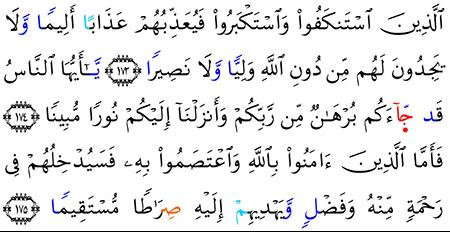 ٱلَّذِينَ ٱسْتَنكَفُوا۟ وَٱسْتَكْبَرُوا۟ فَيُعَذِّبُهُمْ عَذَابًا أَلِيمًا وَّلَا
يَجِدُونَ لَهُم مِّن دُونِ ٱللَّهِ وَلِيًّا وَّلَا نَصِيرًا ١٧٣ يَـٰٓأَيُّهَا ٱلنَّاسُ
قَد جَّآءَكُم بُرْهَـٰنٌ مِّن رَّبِّكُمْ وَأَنزَلْنَآ إِلَيْكُمْ نُورًا مُّبِينًا ١٧٤
فَأَمَّا ٱلَّذِينَ ءَامَنُوا۟ بِٱللَّهِ وَٱعْتَصَمُوا۟ بِهِۦ فَسَيُدْخِلُهُمْ فِى
رَحْمَةٍ مِّنْهُ وَفَضْلٍ وَّيَهْدِيهِمْ إِلَيْهِ صِرَٰطًا مُّسْتَقِيمًا ١٧٥